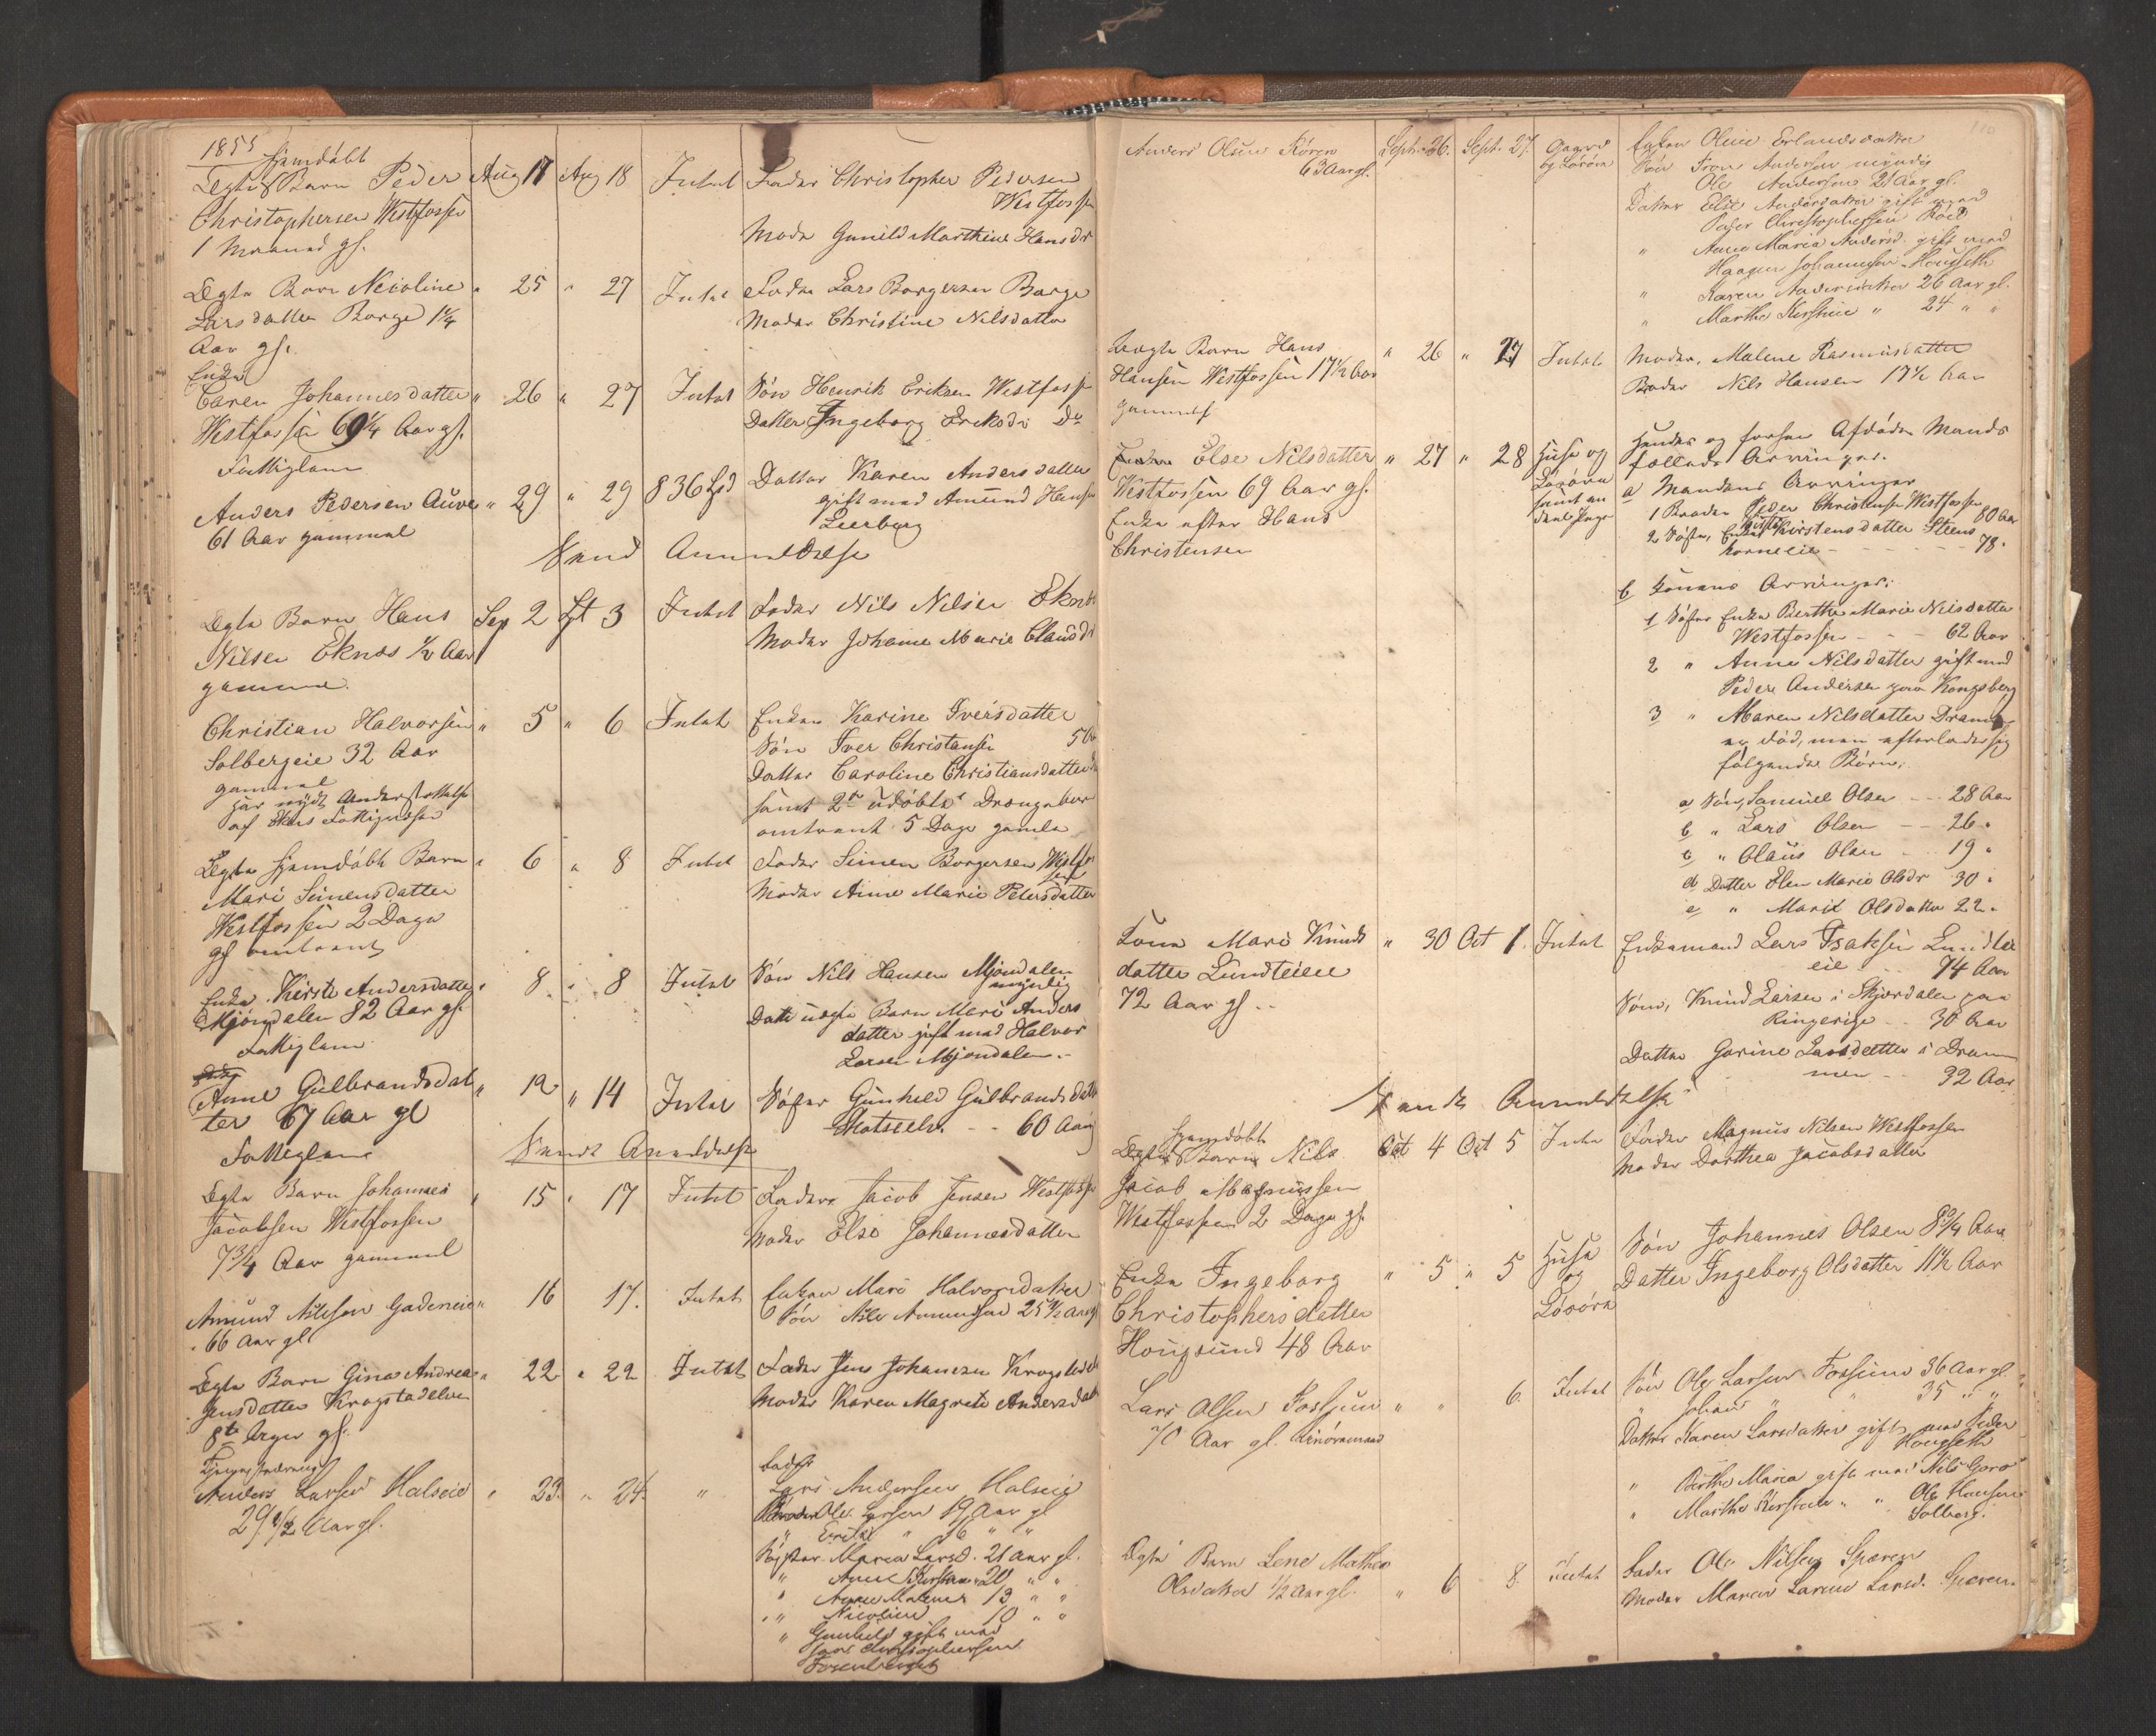 1855
hjemdøbt
Ægte Barn Peder Aug 17 Aug 18 Intet Fader Christopher Pedersen
Westfossen
Christophersen Westfossen
1 Maaned gl.
Moder Gunild Marthine Hansdr
Ægte Barn Nicoline " 25 " 27 Intet Fader Lars Borgersen Borge
Larsdatter Borge 1 1/4
Moder Christine Nilsdatter
Aar gl.
Enke
Caren Johannesdatter " 26 " 27 Intet Søn Henrik Eriksen Westfossen
Westfossen 69 1/4 Aar gl.
Datter Ingeborg Eriksdr Do
Fattiglem
Anders Pedersen Auve " 29 " 29 836 Datter Karen Andersdatter
61 Aar gammel
gift med Amund Hansen
Leerberg
Sendt Anmeldelse
Ægte Barn Hans Sep 2 Spt 3 Intet Fader Nils Nilsen Eknes
Nilsen Eknes 1/2 Aar
Moder Johanne Marie Clausdr
gammel
Christian Halvorsen " 5 " 6 Intet Enken Karine Iversdatter
Solbergeie 32 Aar
Søn Iver Christiansen
gammel
Datter Caroline Christiansdatter
har nydt Understøttelse
samt 2de udøbte Drengebørn
af Ekers Fattigvæsen
omtrent 5 Dage gamle
Ægte hjemdøbt Barn " 6 " 8 Intet Fader Simen Borgersen
Mari Simensdatter
Moder Anne Marie Petersdatter
Westfossen 2 Dage
gl omtrent
Enke Kirsti Andersdatter " 8 " 8 Intet Søn Nils Hansen Mjøndalen
myndig
Mjøndalen 82 Aar gl.
Dat uægte Barn Mari Anders
Fattiglem
datter gift med Halvor
Larsen Mjøndalen
Anne Gulbrandsdat " 12 " 14 Intet Søster Gunhild Gulbrandsdatter
ter 67 Aar gl
60 Aar
Fattiglem
Sendt Anmeldelse
Ægte Barn Johannes " 15 " 17 Intet Fader Jacob Jensen Westfossen
Jacobsen Westfossen
Moder Else Johannesdatter
7 3/4 Aar gammel
Amund Nilsen " 16 17. Intet Enken Mari Halvorsdatter
66 Aar gl
Søn Nils Amundsen 25 1/2 Aar gl
Ægte Barn Gina Andrea " 22 " 22 Intet Fader Jens Johansen
Jensdatter Krogstadelven
Moder Karen Magrete Andersdatter
8te Uger gl.
Anders Larsen Halseie " 23. " 24. "
29 1/2 Aar gl.
Fader
Lars Andersen Halseie
Broder Ole Larsen 19 Aar gl
" " 16 " "
Søster Maren Larsd. 21 Aar gl.
" Anne Kirstine 20 " "
" Anne Malene 13 " "
" Nicoline 10 " "
" Gunhild gift med
Lars Christophersen
Anders Olsen 63 Aar gl. Sept. 26. Sept. 27. Gaard og Løsøre
Enken Oline Erlandsdatter
Søn Andersen myndig
Ole Andersen 21 Aar gl.
Datter Else Andersdatter gift med
Peder Christophersen
" Anne Maria Andersd. gift med
Haagen Johannesen Hougseth
" Karen Andersdatter 26 Aar gl.
" Marthe Kirstine " 24 " "
Uægte Barn Hans " 26 " 27 Intet Moder, Malene Rasmusdatter
Hansen Westfossen 17 1/2 Aar
Broder Nils Hansen 17 1/2 Aar
gammel
Else Nilsdatter " 27 " 28 Huse og Løsøre samt en deel Penge
Westfossen 69 Aar gl.
Enke efter Hans
Christensen
Hendes og forhen Afdøde Mands
fælleds Arvinger.
a Mandens Arvinger
1 Broder Peder Christensen Westfossen 80 Aar
2 Søster, Enke Kirstensdatter Steens
78.
b Konens Arvinger:
1 Søster Enke Berthe Marie Nilsdatter
Westfossen - - - 62 Aar
2 " Anne Nilsdatter gift med
Peder Andersen paa Kongsberg
3 " Maren Nilsdatter Drammen
er død, men efterlader sig
følgende Børn:
a Søn, Samuel Olsen - - 28 Aar
b " Lars Olsen - - 26 "
c " Olaus Olsen - 19 "
d Datter Elen Marie Olsdr 30 "
e " Marit Olsdatter 22 "
Kone Mari Knuds " 30 Oct 1. Intet Enkemand Lars Isaksen Lundtei
datter Lundteieie
eie - - 74 Aar
72 Aar gl..
Søn, Knud Larsen i Skjørdalen paa
Ringerige - - 30 Aar
Datter Gorine Larsdatter i Dram
men - - 32 Aar
Sendt Anmeldelse
hjemdøbt
Ægte Barn Nils Oct 4 Oct 5 Intet Fader Magnus Nilsen Westfossen
Jacob Magnussen
Moder Dorthea Jacobsdatter
Westfossen 2 Dage gl.
Enke Ingeborg " 5 " 5 Huse og Løsøre
Christophersdatter
Hougsund 48 Aar
Søn Johannes Olsen 8 3/4 Aar
Datter Ingeborg Olsdatter 11 1/2 Aar
Lars Olsen " " 6. Intet Søn Ole Larsen Fossum 36 Aar gl.
70 Aar gl.
" Johan " " 35 " "
Datter Karen Larsdatter gift med Peder
Hougseth
" Berthe Maria gift med Nils
" Marthe Kirstine " " Ole Hansen
Solberg.
Ægte Barn Lene Mathea " 6 8. Intet Fader Ole Nilsen
Olsdatter 1/2 Aar gl.
Moder Maren Larsd.